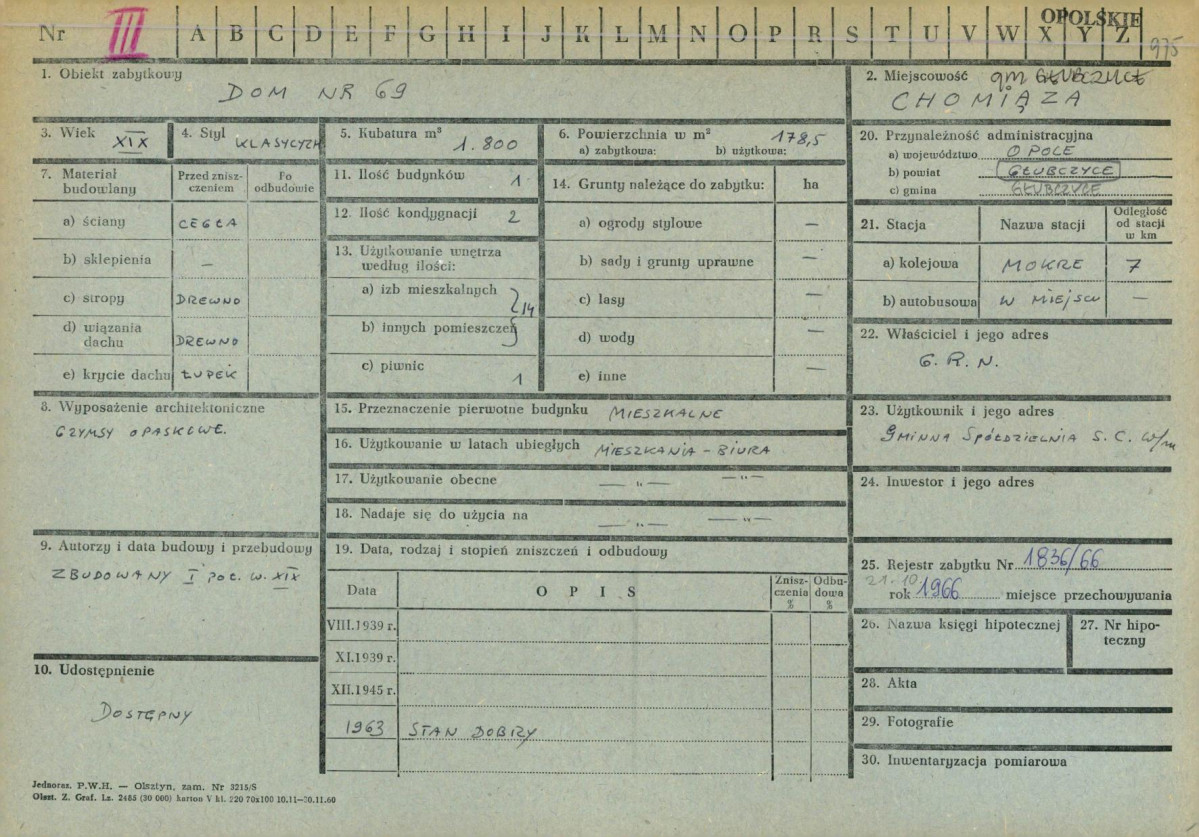 Nr III A B C D E F G H I J K L M N O P R S T U V W X Y Z OPOLSKIE
975
1. Obiekt zabytkowy
DOM NR 69
2. Miejscowość gm GŁUBCZYCE
CHOMIĄZA
3. Wiek XIX
4. Styl KLASYCYZM
5. Kubatura m³ 1.800
6. Powierzchnia w m² 178,5
a) zabytkowa: b) użytkowa:
20. Przynależność administracyjna
a) województwo OPOLE
b) powiat GŁUBCZYCE
c) gmina GŁUBCZYCE
7. Materiał budowlany
Przed zniszczeniem
Po odbudowie
a) ściany CEGŁA
b) sklepienia —
c) stropy DREWNO
d) wiązania dachu DREWNO
e) krycie dachu ŁUPEK
11. Ilość budynków 1
12. Ilość kondygnacji 2
13. Użytkowanie wnętrza według ilości:
a) izb mieszkalnych
b) innych pomieszczeń
14
c) piwnic 1
14. Grunty należące do zabytku: ha
a) ogrody stylowe —
b) sady i grunty uprawne —
c) lasy —
d) wody —
e) inne —
21. Stacja Nazwa stacji Odległość od stacji w km
a) kolejowa MOKRE 7
b) autobusowa W MIEJSCU —
22. Właściciel i jego adres
G. R. N.
8. Wyposażenie architektoniczne
GZYMSY OPASKOWE.
15. Przeznaczenie pierwotne budynku MIESZKALNE
16. Użytkowanie w latach ubiegłych MIESZKANIA – BIURA
17. Użytkowanie obecne — „ — — „ —
18. Nadaje się do użycia na — „ — — „ —
23. Użytkownik i jego adres
GMINNA SPÓŁDZIELNIA S. C. w/m
24. Inwestor i jego adres
9. Autorzy i data budowy i przebudowy
ZBUDOWANY I POŁ. W. XIX
19. Data, rodzaj i stopień zniszczeń i odbudowy
Data OPIS Zniszczenia % Odbudowa %
VIII.1939 r.
XI.1939 r.
XII.1945 r.
1963 STAN DOBRY
25. Rejestr zabytku Nr 1836/66
21.10.
rok 1966 miejsce przechowywania
26. Nazwa księgi hipotecznej
27. Nr hipoteczny
28. Akta
29. Fotografie
30. Inwentaryzacja pomiarowa
10. Udostępnienie
DOSTĘPNY
Jednoraz. P.W.H. — Olsztyn, zam. Nr 3215/S
Olszt. Z. Graf. Lz. 2485 (30 000) karton V kl. 220 70x100 10.11—30.11.60